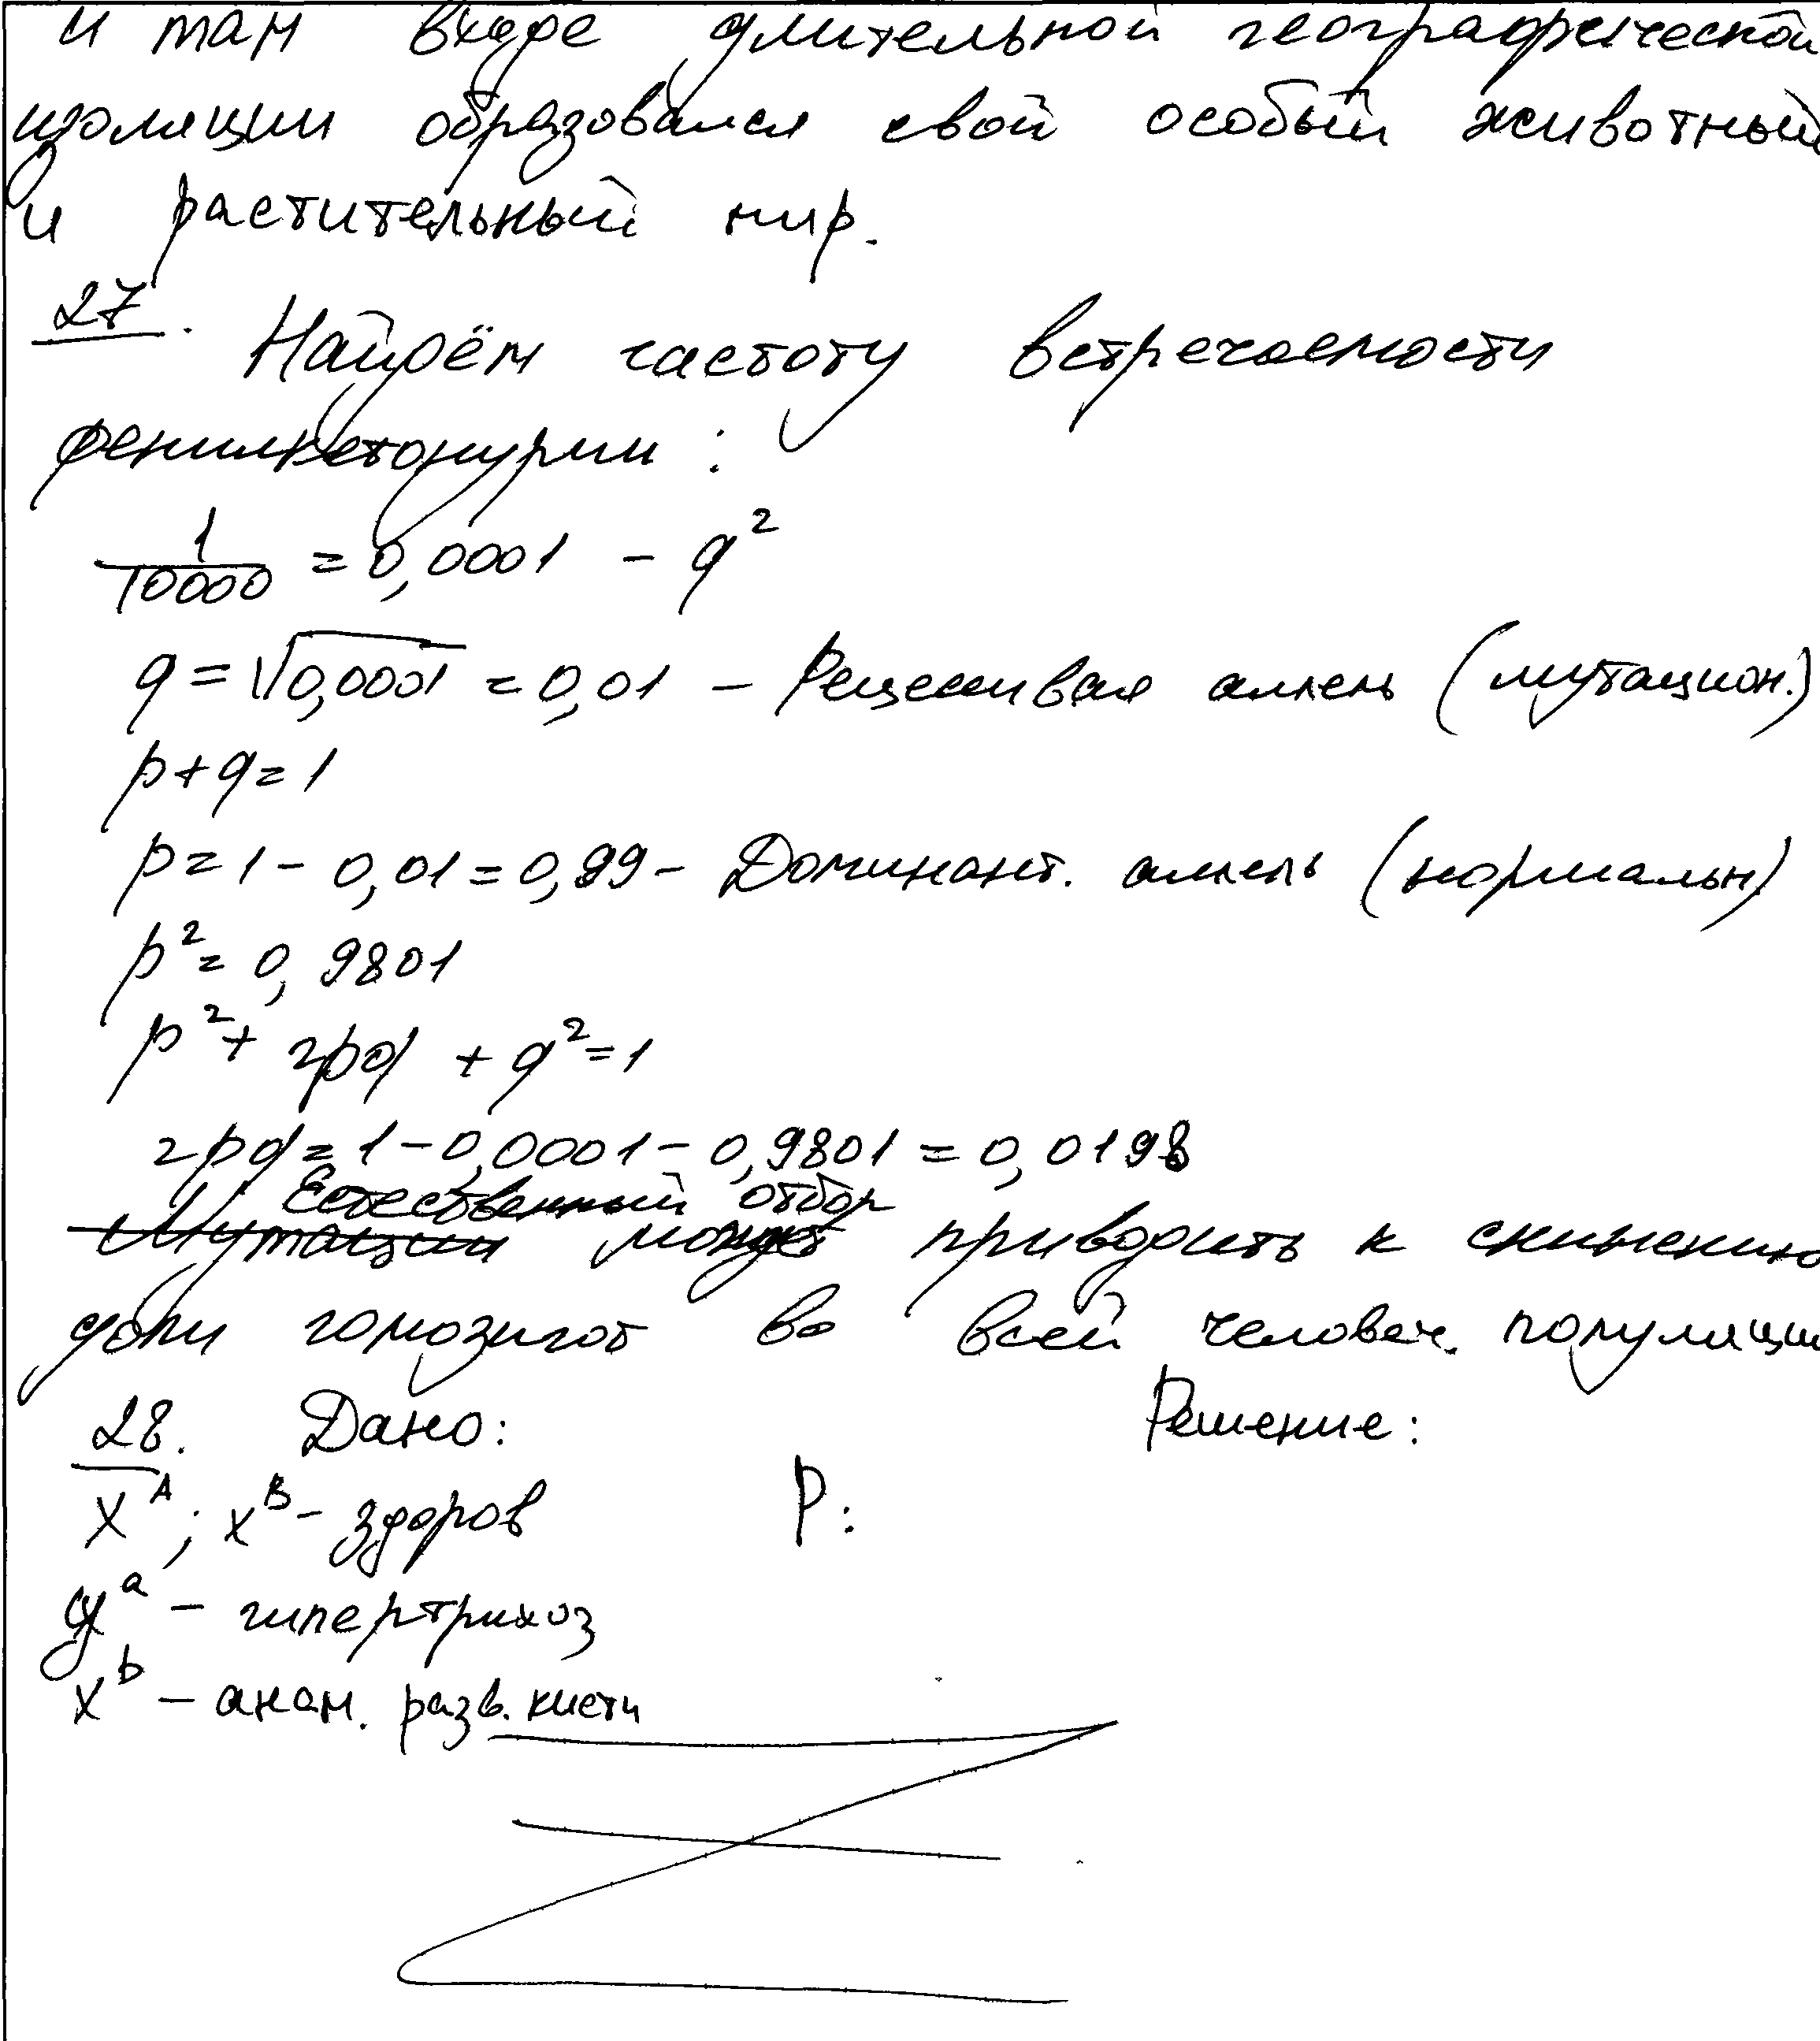 и там входе длительной географической
изоляции образовался свой особый животный
и растительный мир.
27. Найдём частоту встречаемости
фенилкетонурии:
1/10000 = 0,0001 - q²
q = √0,0001 = 0,01 - Рецессивая аллель (мутацион.)
p+q=1
p=1-0,01=0,99- Доминант. аллель (нормальн)
p²=0,9801
p²+2pq+q²=1
2pq=1-0,0001-0,9801=0,0198
Естественный отбор
Мутации может приводить к снижению
доли гомозигот во всей человеч. популяции
28. Дано: Решение:
X^A; X^B - здоров P:
У^a - гипертрихоз
X^b - аном. разв. кисти